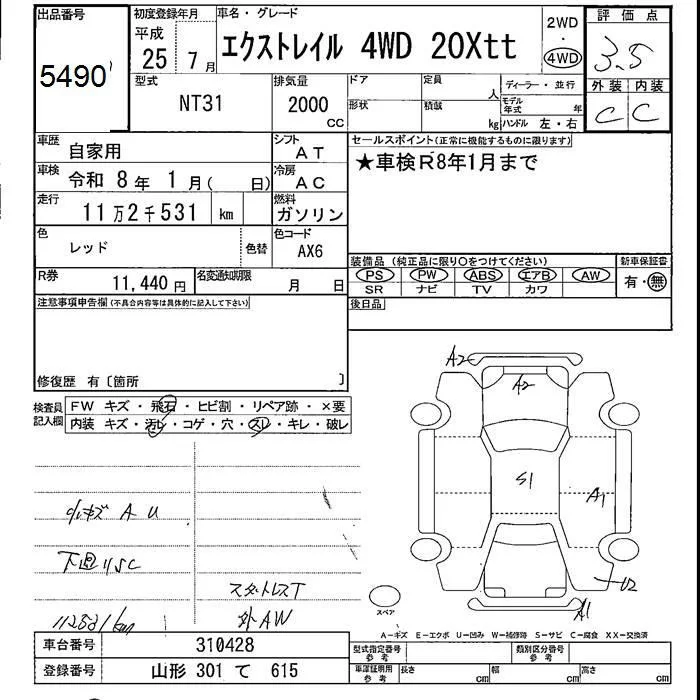 出品番号
5490
初度登録年月
平成
25年 7月
車名・グレード
エクストレイル 4WD 20Xtt
2WD
・
4WD
評価点
3.5
外装 内装
C C
型式
NT31
排気量
2000
CC
ドア
形状
定員
人
積載
kg
ディーラー・並行
モデル年式 年
ハンドル 左・右
車歴
自家用
シフト
AT
セールスポイント(正常に機能するものに限ります)
★車検R8年1月まで
車検
令和 8年 1月( 日)
冷房
AC
走行
11万2千531 km
燃料
ガソリン
色
レッド
色替
色コード
AX6
装備品(純正品に限り○をつけてください)
PS PW ABS エアB AW
SR ナビ TV カワ
新車保証書
有・無
R券
11,440円
名変通知期限
月 日
後日品
注意事項申告欄(不具合内容等は具体的に記入して下さい)
修復歴 有〔箇所 〕
検査員記入欄
FW キズ・飛石・ヒビ割・リペア跡・×要
内装 キズ・汚レ・コゲ・穴・スレ・キレ・破レ
小キズ A U
下廻りSC
スタットレスT
外AW
A2
A2
S1
A1
U2
A1
スペア
A-キズ E-エクボ U-凹み W-補修跡 S-サビ C-腐食 XX-交換済
車台番号
310428
登録番号
山形 301 て 615
型式指定番号
参考
類別区分番号
参考
車庫証明用
参考
長さ cm
幅 cm
高さ cm